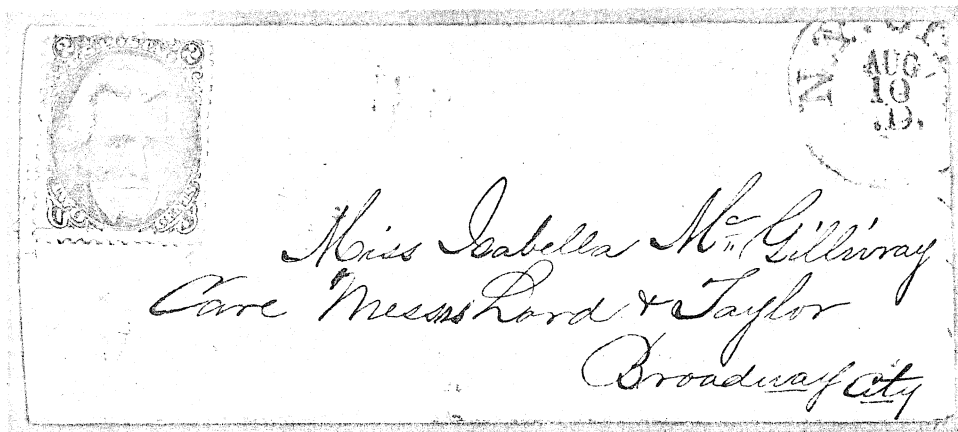 N.Y. CITY
AUG
10
.D.
2 2
U S
Miss Isabella Mc Gillivray
Care Messrs Lord & Taylor
Broadway City